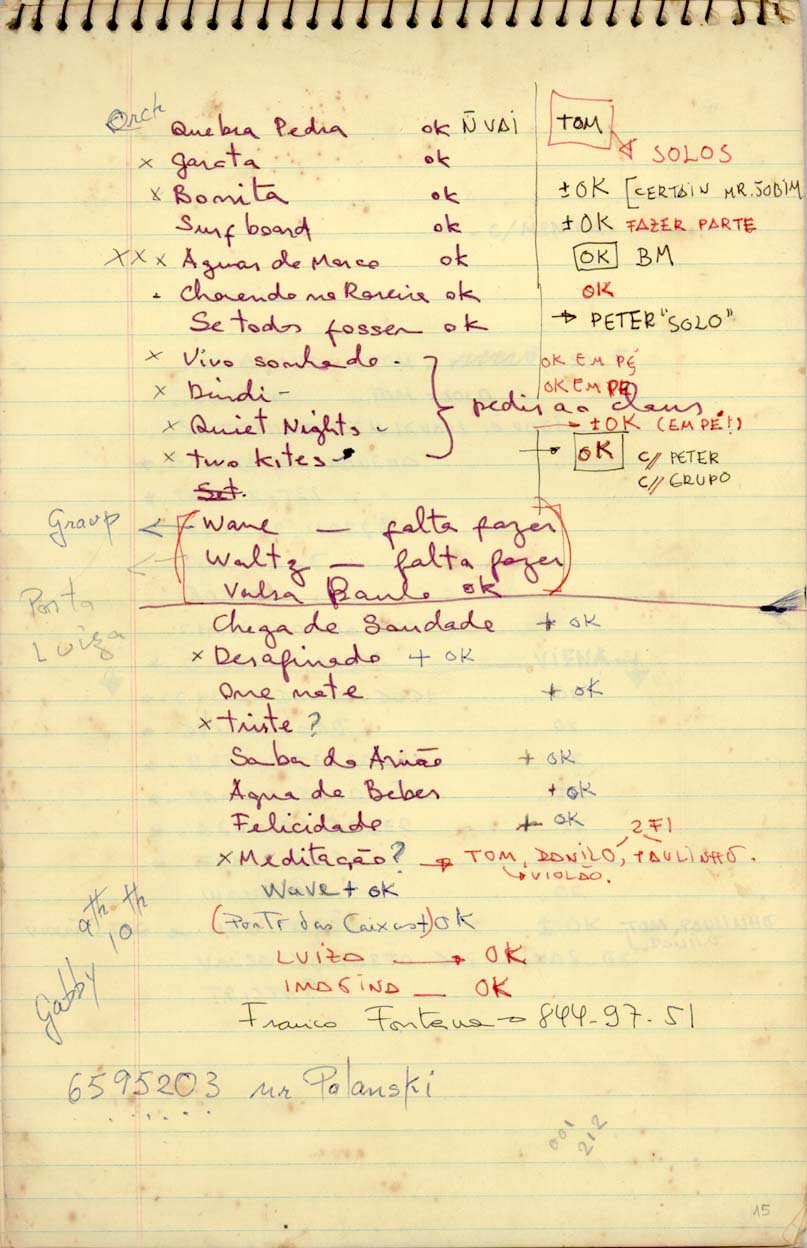 Orch
Quebra Pedra ok Ñ VAI TOM
x garota ok SOLOS
x Bonita ok ±OK [CERTAIN MR. JOBIM
Surfboard ok ±OK FAZER PARTE
XX x Aguas de Março ok OK BM
. Chovendo na Roseira ok OK
Se todos fossem ok → PETER "SOLO"
x Vivo sonhado - OK EM PÉ
x Dindi - OK EM PÉ
pedir ao Claus
x Quiet Nights - ±OK (EM PÉ!)
x two kites - → OK C/ PETER
C/ GRUPO
Set.
Group ← Wave — falta fazer
← Waltz — falta fazer
Valsa Paulo ok
Porta
Luiza
Chega de Saudade + ok
x Desafinado + ok
One note + ok
x triste ?
Samba do Avião + ok
Agua de Beber + ok
Felicidade + ok
2 Fl
x Meditação? → TOM, DANILO, PAULINHO.
VIOLÃO.
Wave + ok
(Ponte das Caixas+) OK
LUIZA → OK
IMAGINA — OK
9th 10th
Gabby
Franco Fontana → 844-97-51
6595203 mr Polanski
001
212
15